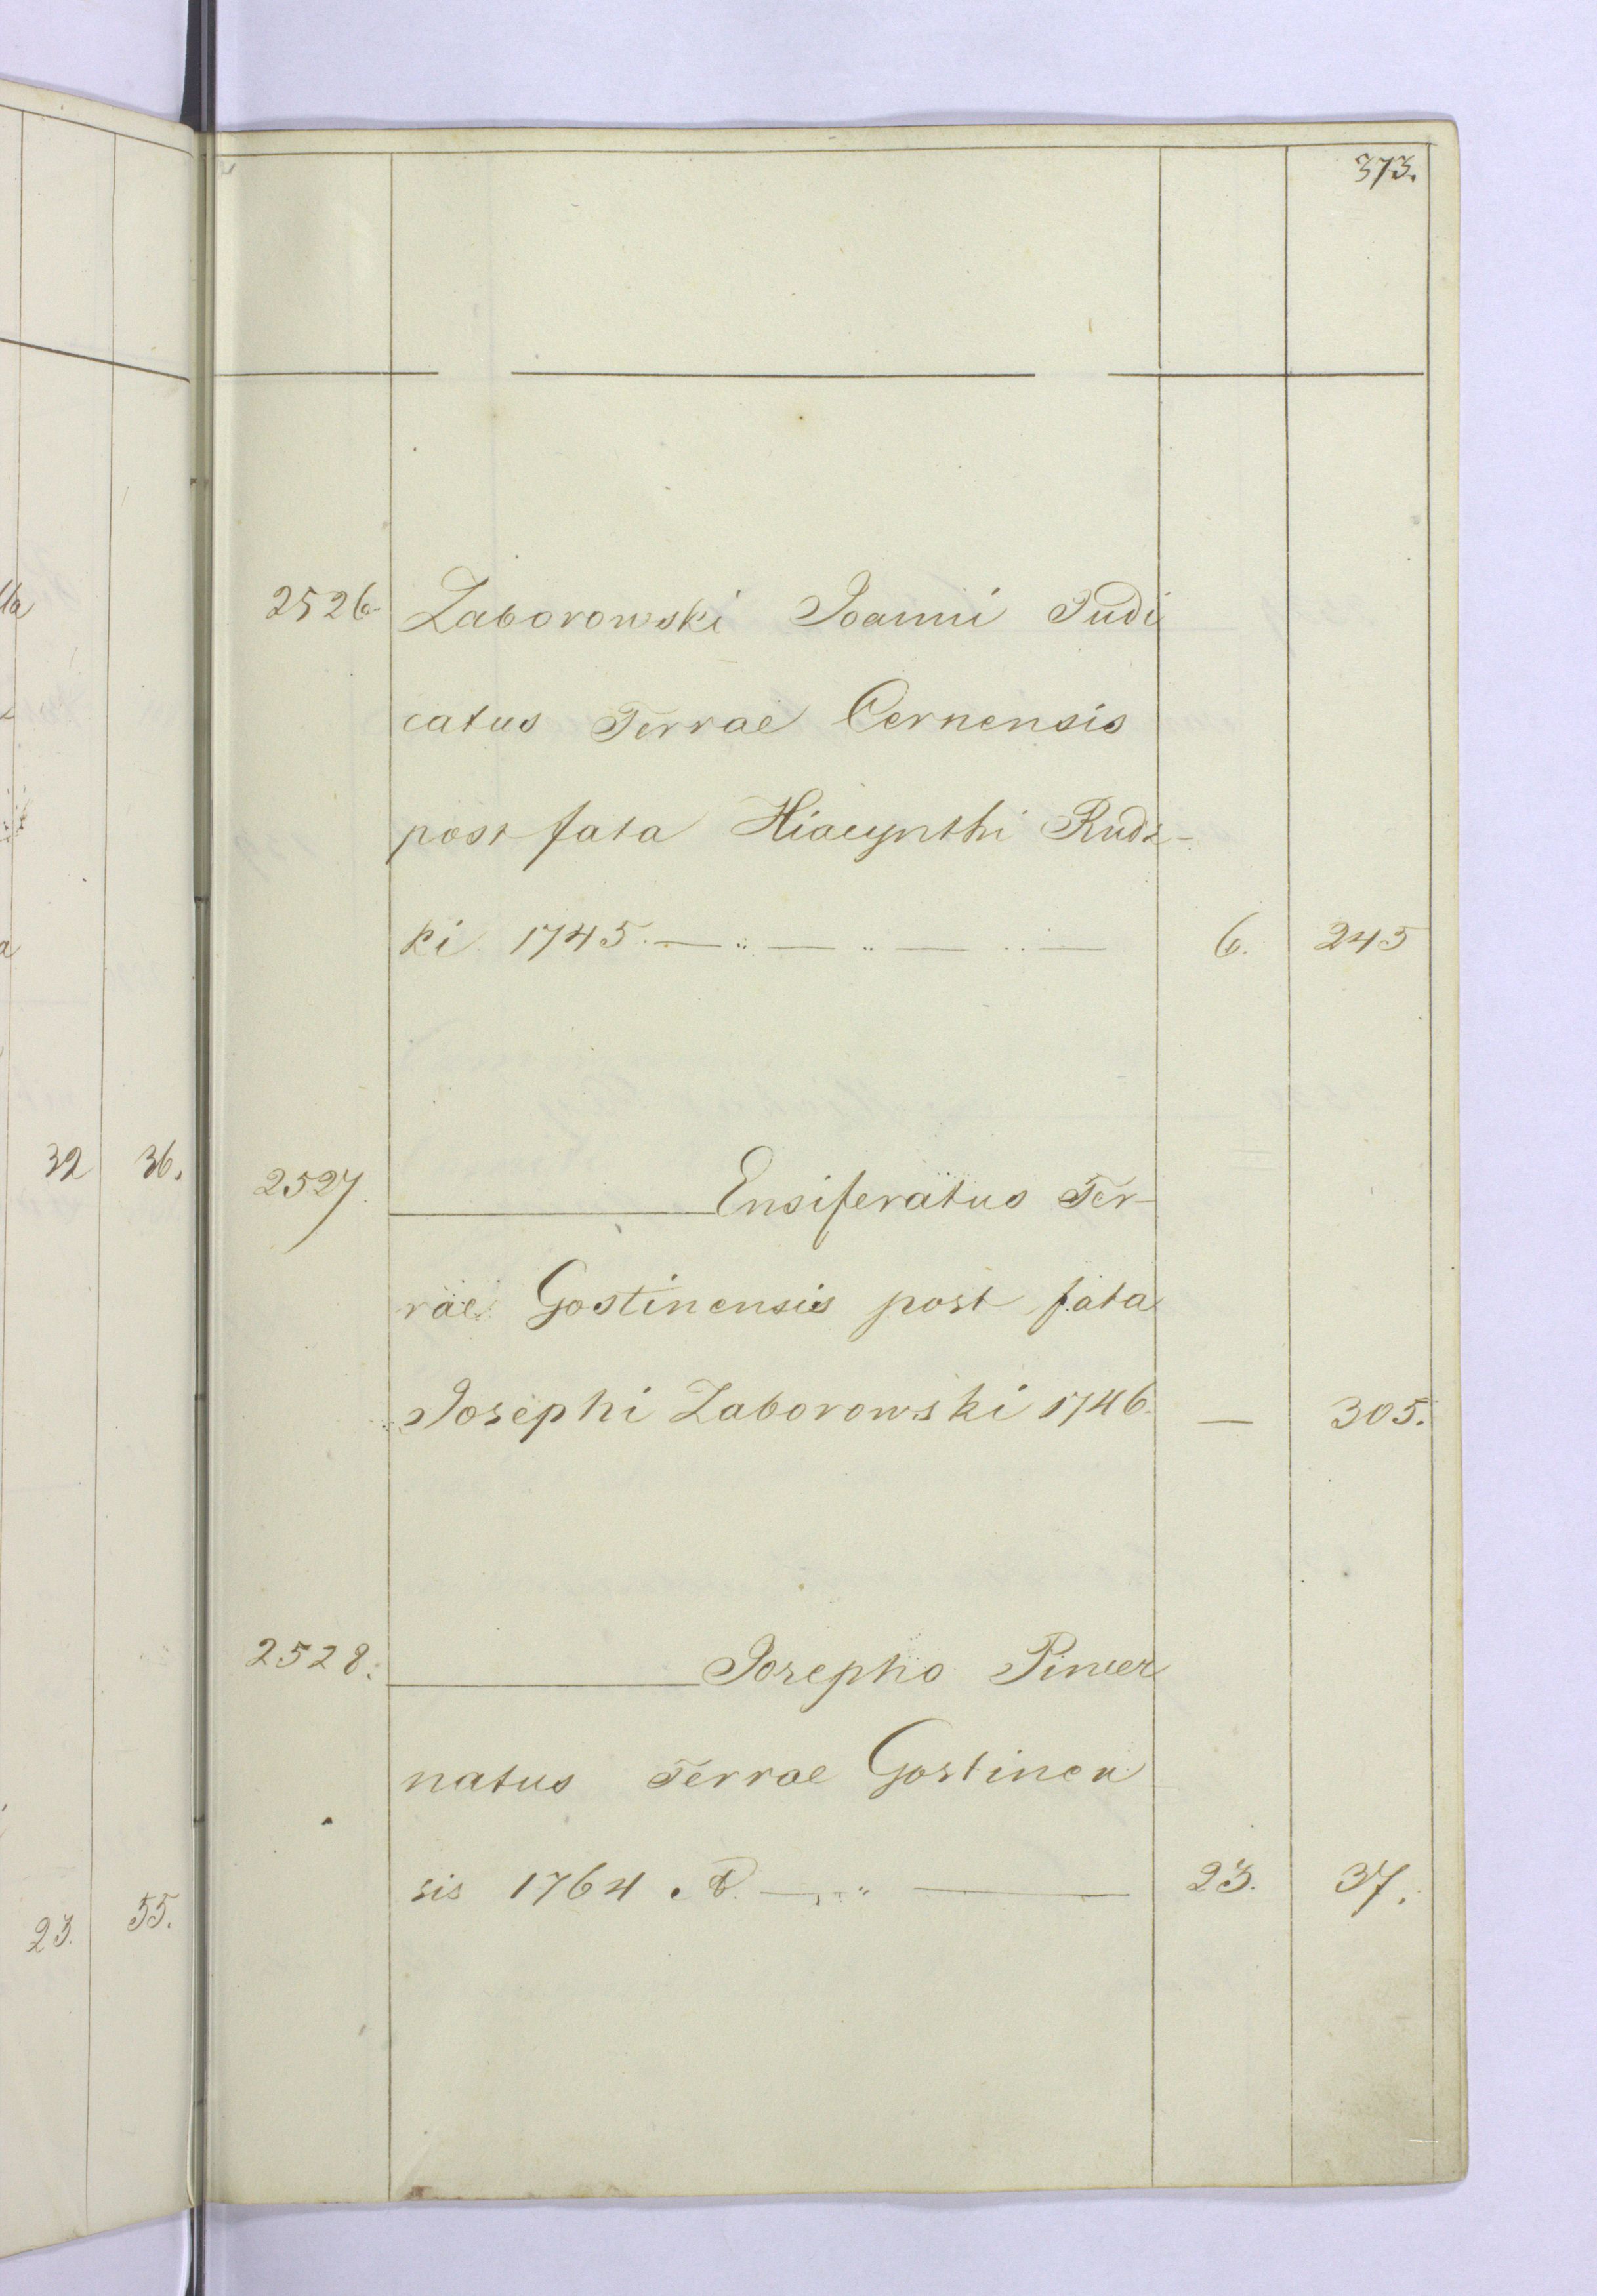 373.
2526. Zaborowski Joanni Judi
catus Terrae Cernensis
post fata Hiacynthi Rudz-
ki 1745. — .. — .. — .. — 6. 245
2527. ———— Ensiferatus Ter-
rae Gostinensis post fata
Josephi Zaborowski 1746. — 305.
2528. ———— Josepho Pincer
natus Terrae Gostinen
sis 1764 — .. — 23. 37.
32 36.
23. 55.